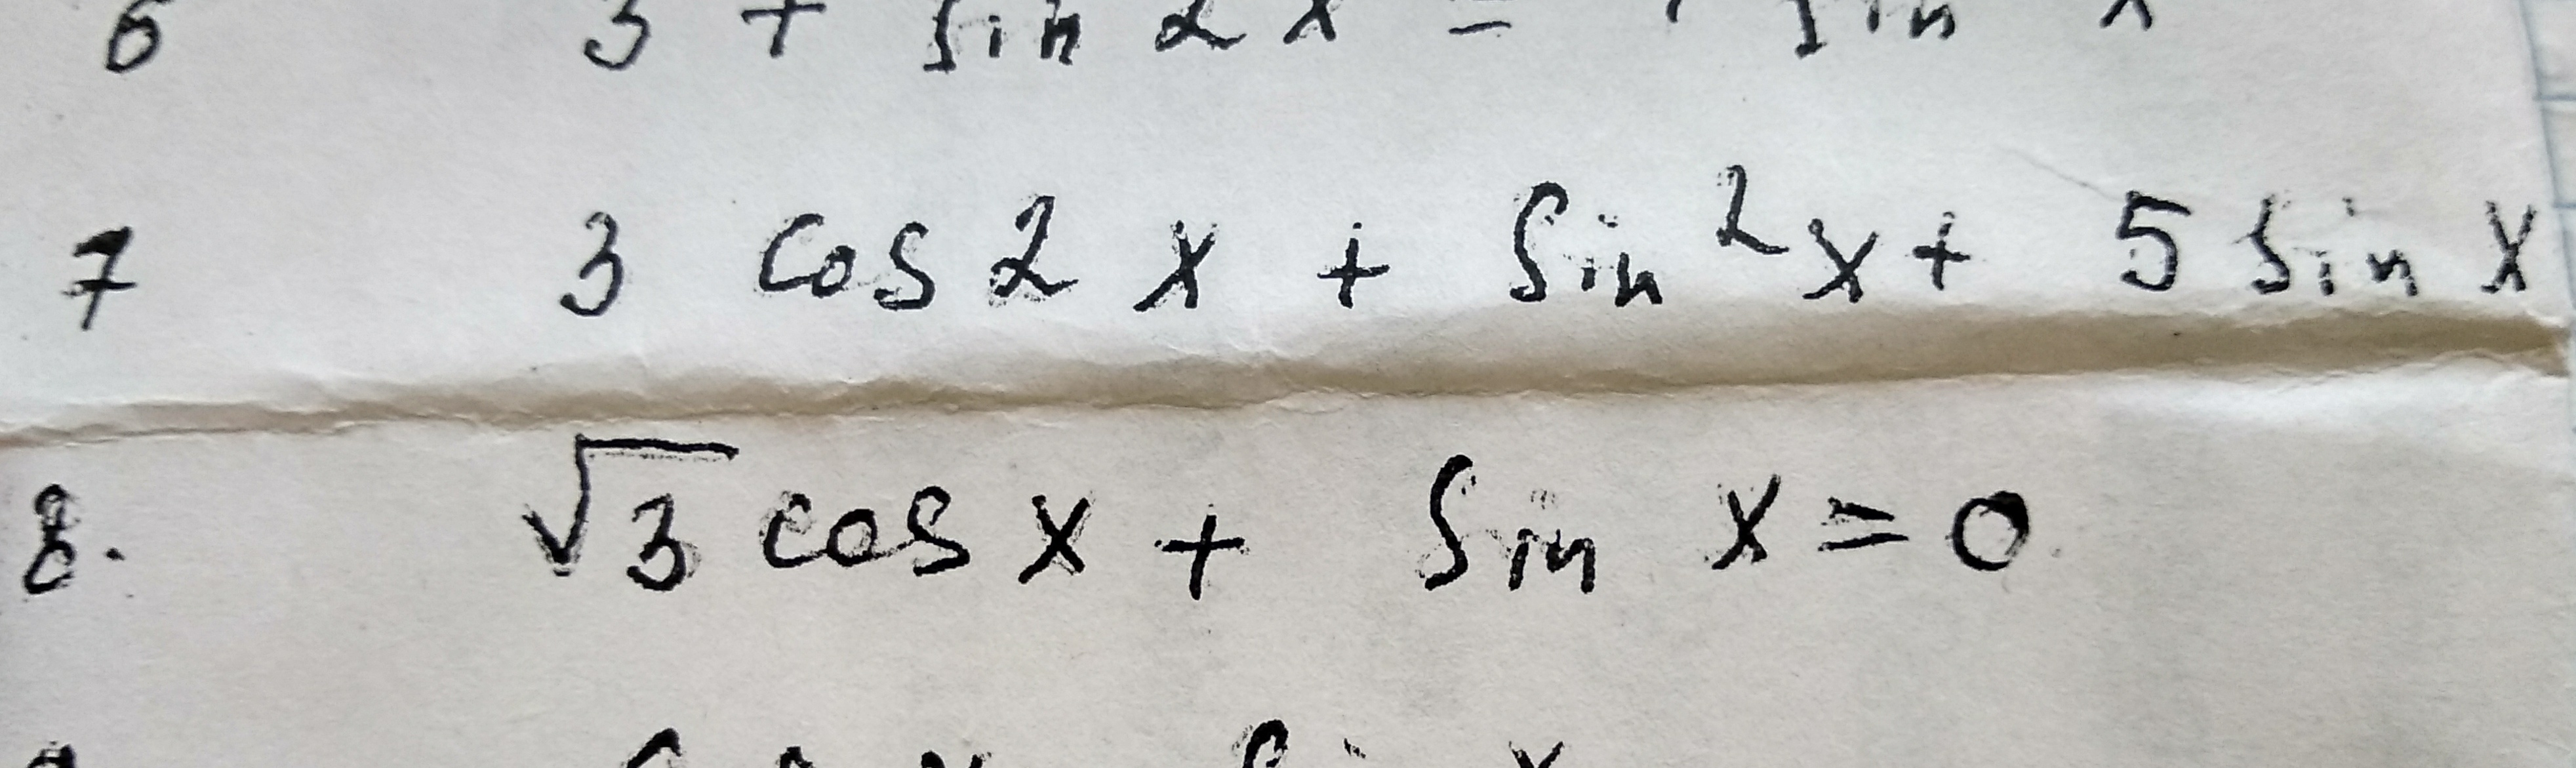 6 3 + sin 2 x = sin x
7 3 cos 2 x + sin²x + 5 sin x
8. √3 cos x + sin x = 0